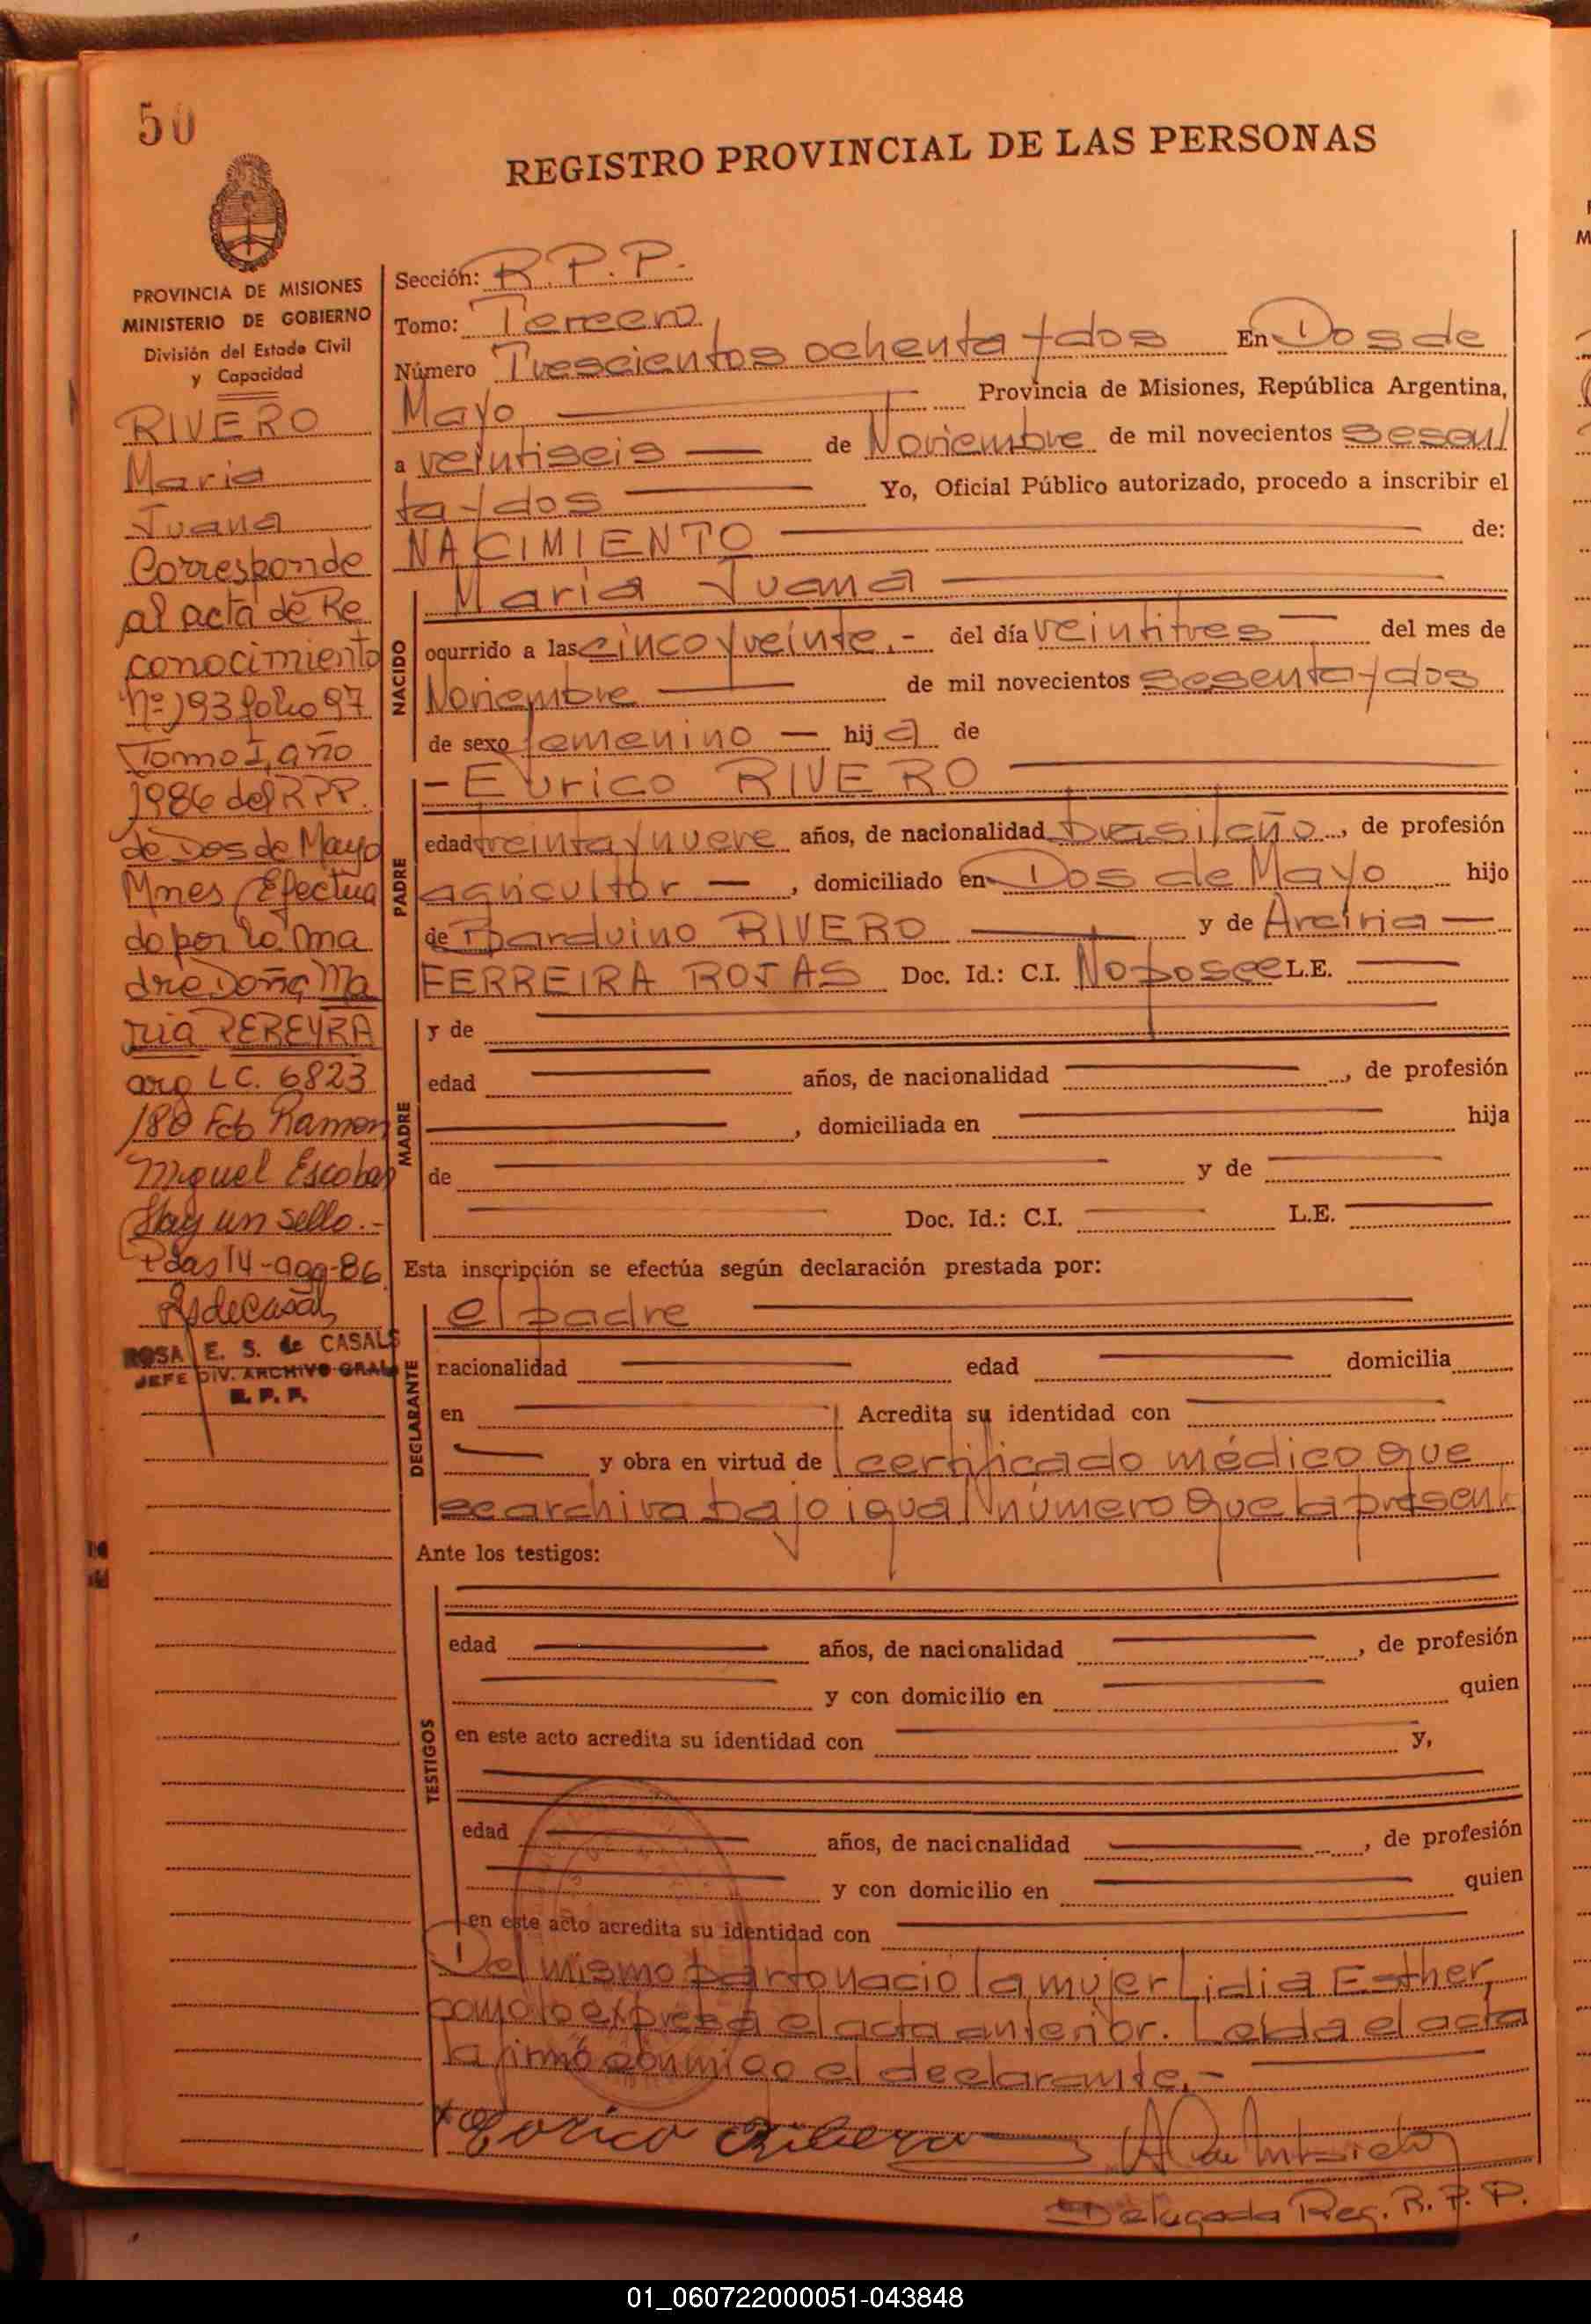 50
REGISTRO PROVINCIAL DE LAS PERSONAS
PROVINCIA DE MISIONES
MINISTERIO DE GOBIERNO
División del Estado Civil
y Capacidad
RIVERO
Maria
Juana
Corresponde
al acta de Re
conocimiento
Nº 193 folio 97
Tomo I, año
1986 del R.P.P.
de Dos de Mayo
Mnes, Efectua
do por la ma
dre Doña Ma
ria PEREYRA
arg LC. 6823
180 Fdo Ramon
Miguel Escobar
Hay un sello.-
Pdas 14-ago-86
ROSA E. S. de CASALS
JEFE DIV. ARCHIVO GRAL
R. P. P.
Sección: R.P.P.
Tomo: Tercero
Número Trescientos ochenta y dos En Dos de
Mayo Provincia de Misiones, República Argentina,
a veintiseis de Noviembre de mil novecientos sesen
ta y dos Yo, Oficial Público autorizado, procedo a inscribir el
NACIMIENTO de:
NACIDO
Maria Juana
ocurrido a las cinco y veinte.- del día veintitres del mes de
Noviembre de mil novecientos sesenta y dos
de sexo femenino hija de
PADRE
- Eurico RIVERO
edad treinta y nueve años, de nacionalidad brasileño, de profesión
agricultor, domiciliado en Dos de Mayo hijo
de Barduino RIVERO y de Arciria
FERREIRA ROJAS Doc. Id.: C.I. No posee L.E.
MADRE
y de
edad años, de nacionalidad , de profesión
, domiciliada en hija
de y de
Doc. Id.: C.I. L.E.
Esta inscripción se efectúa según declaración prestada por:
DECLARANTE
el padre
nacionalidad edad domicilia
en Acredita su identidad con
y obra en virtud de certificado médico que
se archiva bajo igual número que la present
Ante los testigos:
TESTIGOS
edad años, de nacionalidad , de profesión
y con domicilio en quien
en este acto acredita su identidad con y,
edad años, de nacionalidad , de profesión
y con domicilio en quien
en este acto acredita su identidad con
Del mismo parto nacio la mujer Lidia Esther,
como lo expresa el acta anterior. Leida el acta
la firmó conmigo el declarante.-
Eorico Ribero
Delegada Reg. R.P.P.
01_060722000051-043848